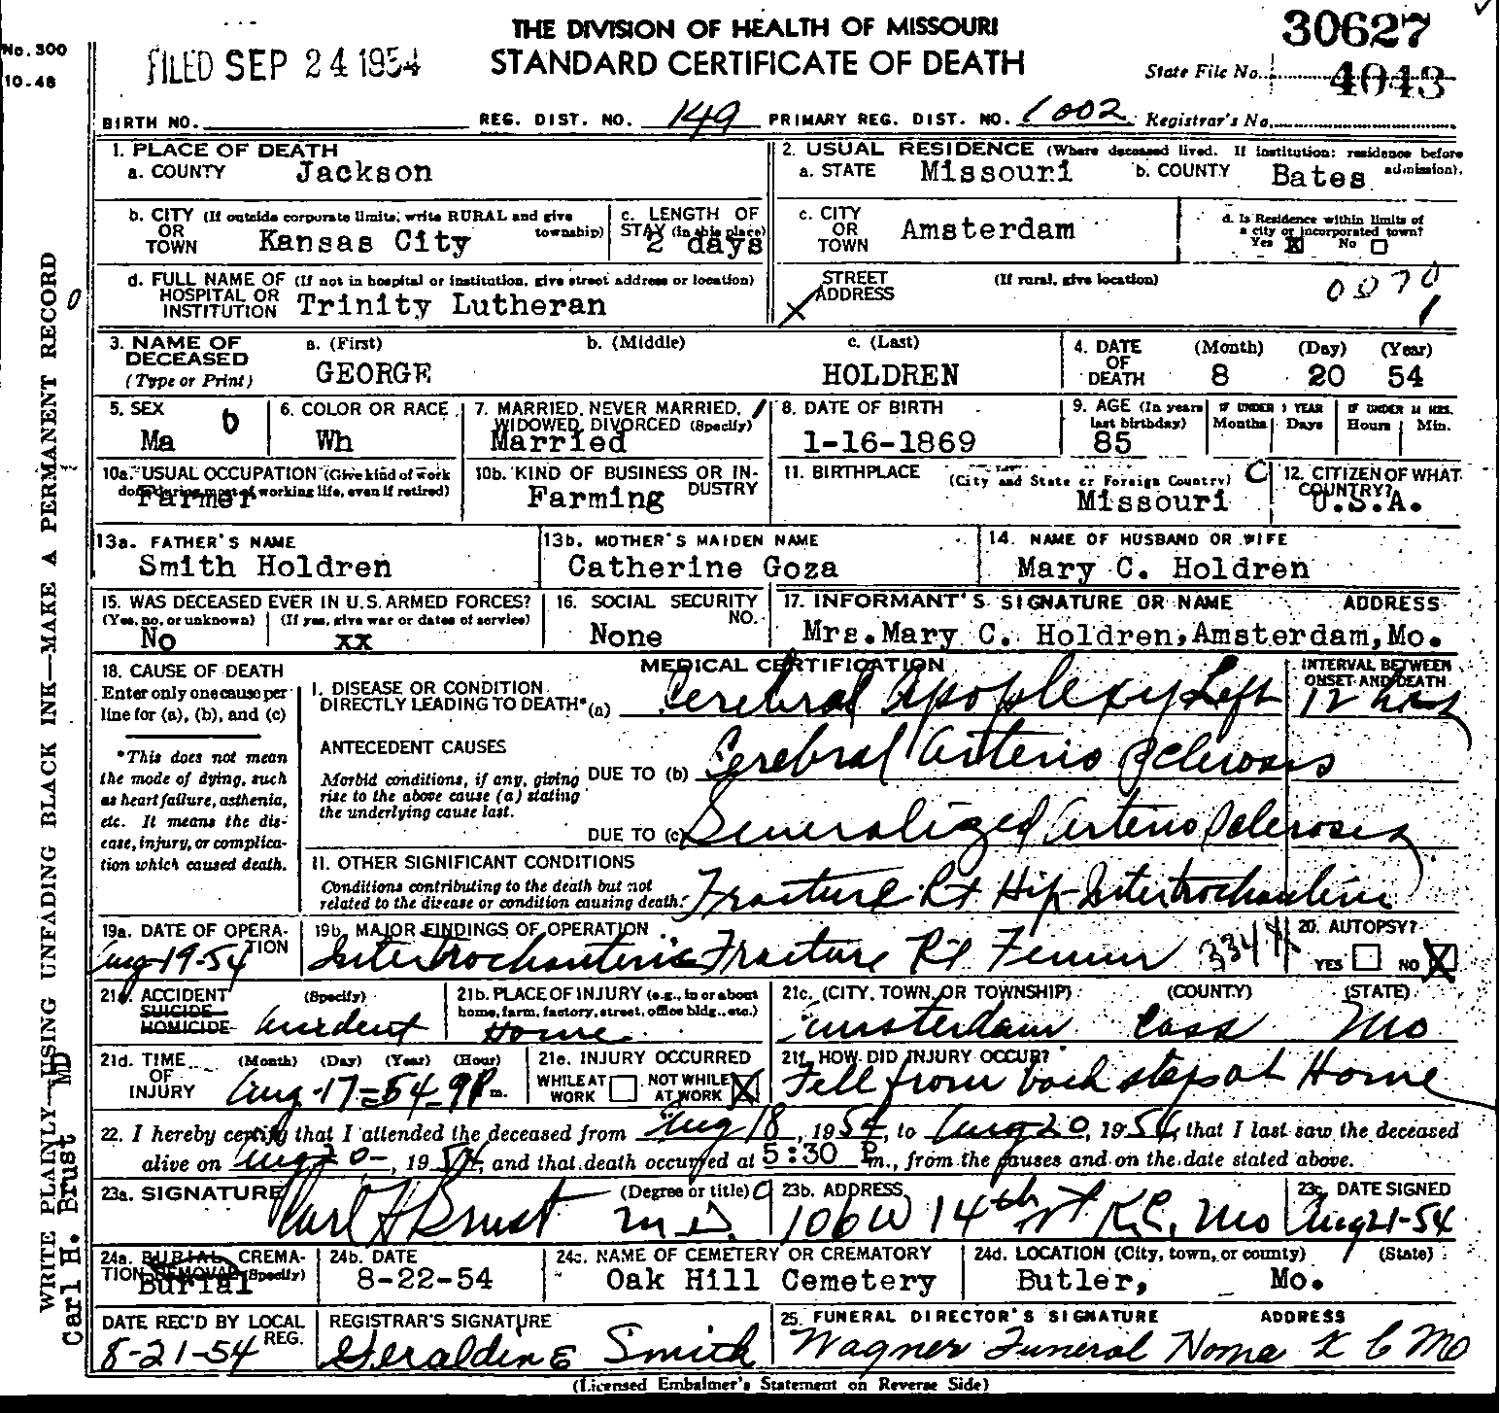 THE DIVISION OF HEALTH OF MISSOURI
STANDARD CERTIFICATE OF DEATH
No. 300
10-48
FILED SEP 24 1954
30627
State File No. 4043
BIRTH NO. REG. DIST. NO. 149 PRIMARY REG. DIST. NO. 1002 Registrar's No.
1. PLACE OF DEATH
a. COUNTY Jackson
2. USUAL RESIDENCE (Where deceased lived. If institution: residence before admission).
a. STATE Missouri b. COUNTY Bates
b. CITY (If outside corporate limits, write RURAL and give township)
OR
TOWN Kansas City
c. LENGTH OF
STAY (in this place)
2 days
c. CITY
OR
TOWN Amsterdam
d. Is Residence within limits of
a city or incorporated town?
Yes X No
d. FULL NAME OF (If not in hospital or institution, give street address or location)
HOSPITAL OR
INSTITUTION Trinity Lutheran
STREET
ADDRESS
(If rural, give location)
0070
1
3. NAME OF
DECEASED
(Type or Print)
a. (First) b. (Middle) c. (Last)
GEORGE HOLDREN
4. DATE
OF
DEATH
(Month) (Day) (Year)
8 20 54
5. SEX
Ma
6. COLOR OR RACE
Wh
7. MARRIED, NEVER MARRIED,
WIDOWED, DIVORCED (Specify)
Married
8. DATE OF BIRTH
1-16-1869
9. AGE (In years
last birthday)
85
IF UNDER 1 YEAR
Months Days
IF UNDER 24 HRS.
Hours Min.
10a. USUAL OCCUPATION (Give kind of work
done during most of working life, even if retired)
Farmer
10b. KIND OF BUSINESS OR INDUSTRY
Farming
11. BIRTHPLACE (City and State or Foreign Country)
Missouri
12. CITIZEN OF WHAT
COUNTRY?
U.S.A.
13a. FATHER'S NAME
Smith Holdren
13b. MOTHER'S MAIDEN NAME
Catherine Goza
14. NAME OF HUSBAND OR WIFE
Mary C. Holdren
15. WAS DECEASED EVER IN U.S. ARMED FORCES?
(Yes, no, or unknown) (If yes, give war or dates of service)
No xx
16. SOCIAL SECURITY
NO.
None
17. INFORMANT'S SIGNATURE OR NAME ADDRESS
Mrs. Mary C. Holdren, Amsterdam, Mo.
18. CAUSE OF DEATH
Enter only one cause per
line for (a), (b), and (c)
*This does not mean
the mode of dying, such
as heart failure, asthenia,
etc. It means the dis-
ease, injury, or complica-
tion which caused death.
MEDICAL CERTIFICATION
INTERVAL BETWEEN
ONSET AND DEATH
I. DISEASE OR CONDITION
DIRECTLY LEADING TO DEATH* (a) Cerebral apoplexy Left 12 hrs
ANTECEDENT CAUSES
Morbid conditions, if any, giving
rise to the above cause (a) stating
the underlying cause last.
DUE TO (b) Cerebral arterio sclerosis
DUE TO (c) Generalized arterio sclerosis
II. OTHER SIGNIFICANT CONDITIONS
Conditions contributing to the death but not
related to the disease or condition causing death.
Fracture Rt Hip-Intertrochanteric
19a. DATE OF OPERA-
TION
Aug-19-54
19b. MAJOR FINDINGS OF OPERATION
Intertrochanteric Fracture Rt Femur
20. AUTOPSY?
YES NO X
21a. ACCIDENT
SUICIDE
HOMICIDE
(Specify)
accident
21b. PLACE OF INJURY (e.g., in or about
home, farm, factory, street, office bldg., etc.)
Home
21c. (CITY, TOWN, OR TOWNSHIP) (COUNTY) (STATE)
Amsterdam Cass Mo
21d. TIME
OF
INJURY
(Month) (Day) (Year) (Hour)
Aug-17-54-9P m.
21e. INJURY OCCURRED
WHILE AT
WORK
NOT WHILE
AT WORK X
21f. HOW DID INJURY OCCUR?
Fell from back steps at Home
22. I hereby certify that I attended the deceased from Aug 18, 1954, to Aug 20, 1954, that I last saw the deceased
alive on Aug 20-, 1954, and that death occurred at 5:30 P m., from the causes and on the date stated above.
23a. SIGNATURE (Degree or title)
Carl H Brust M.D.
23b. ADDRESS
106 W 14th st K.C. Mo
23c. DATE SIGNED
Aug 21-54
24a. BURIAL, CREMA-
TION, REMOVAL (Specify)
Burial
24b. DATE
8-22-54
24c. NAME OF CEMETERY OR CREMATORY
Oak Hill Cemetery
24d. LOCATION (City, town, or county) (State)
Butler, Mo.
DATE REC'D BY LOCAL
REG.
8-21-54
REGISTRAR'S SIGNATURE
Geraldine Smith
25. FUNERAL DIRECTOR'S SIGNATURE ADDRESS
Wagner Funeral Home K C Mo
(Licensed Embalmer's Statement on Reverse Side)
WRITE PLAINLY—USING UNFADING BLACK INK—MAKE A PERMANENT RECORD
Carl H. Brust MD